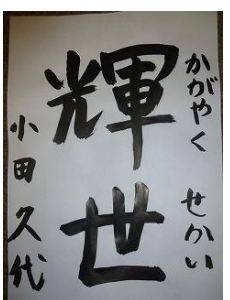 かがやく せかい
輝世
小田久代